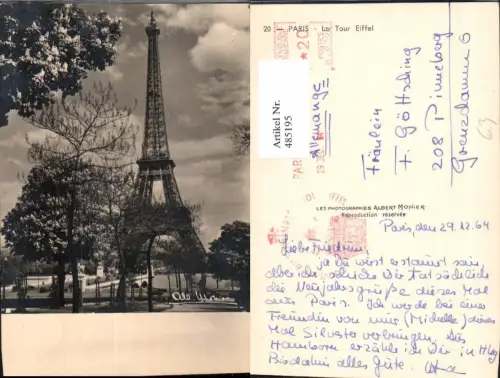 Alb. Monier
20 - PARIS - La Tour Eiffel
Artikel Nr.
485195
Allemagne
Fräulein
F. Göttsching
208 Pinneberg
Grenzdamm 6
63
LES PHOTOGRAPHIES ALBERT MONIER
Reproduction réservée
Paris, den 29.12.64
Liebe
ja Du wirst erstaunt sein,
aber ich schicke Dir tatsächlich
die Neujahrsgrüße dieses Mal
aus Paris. Ich werde bei einer
Freundin von mir (Michelle) dieses
Mal Silvester verbringen. Aus
erzähle ich Dir in Hbg
Bisdahin alles Gute.